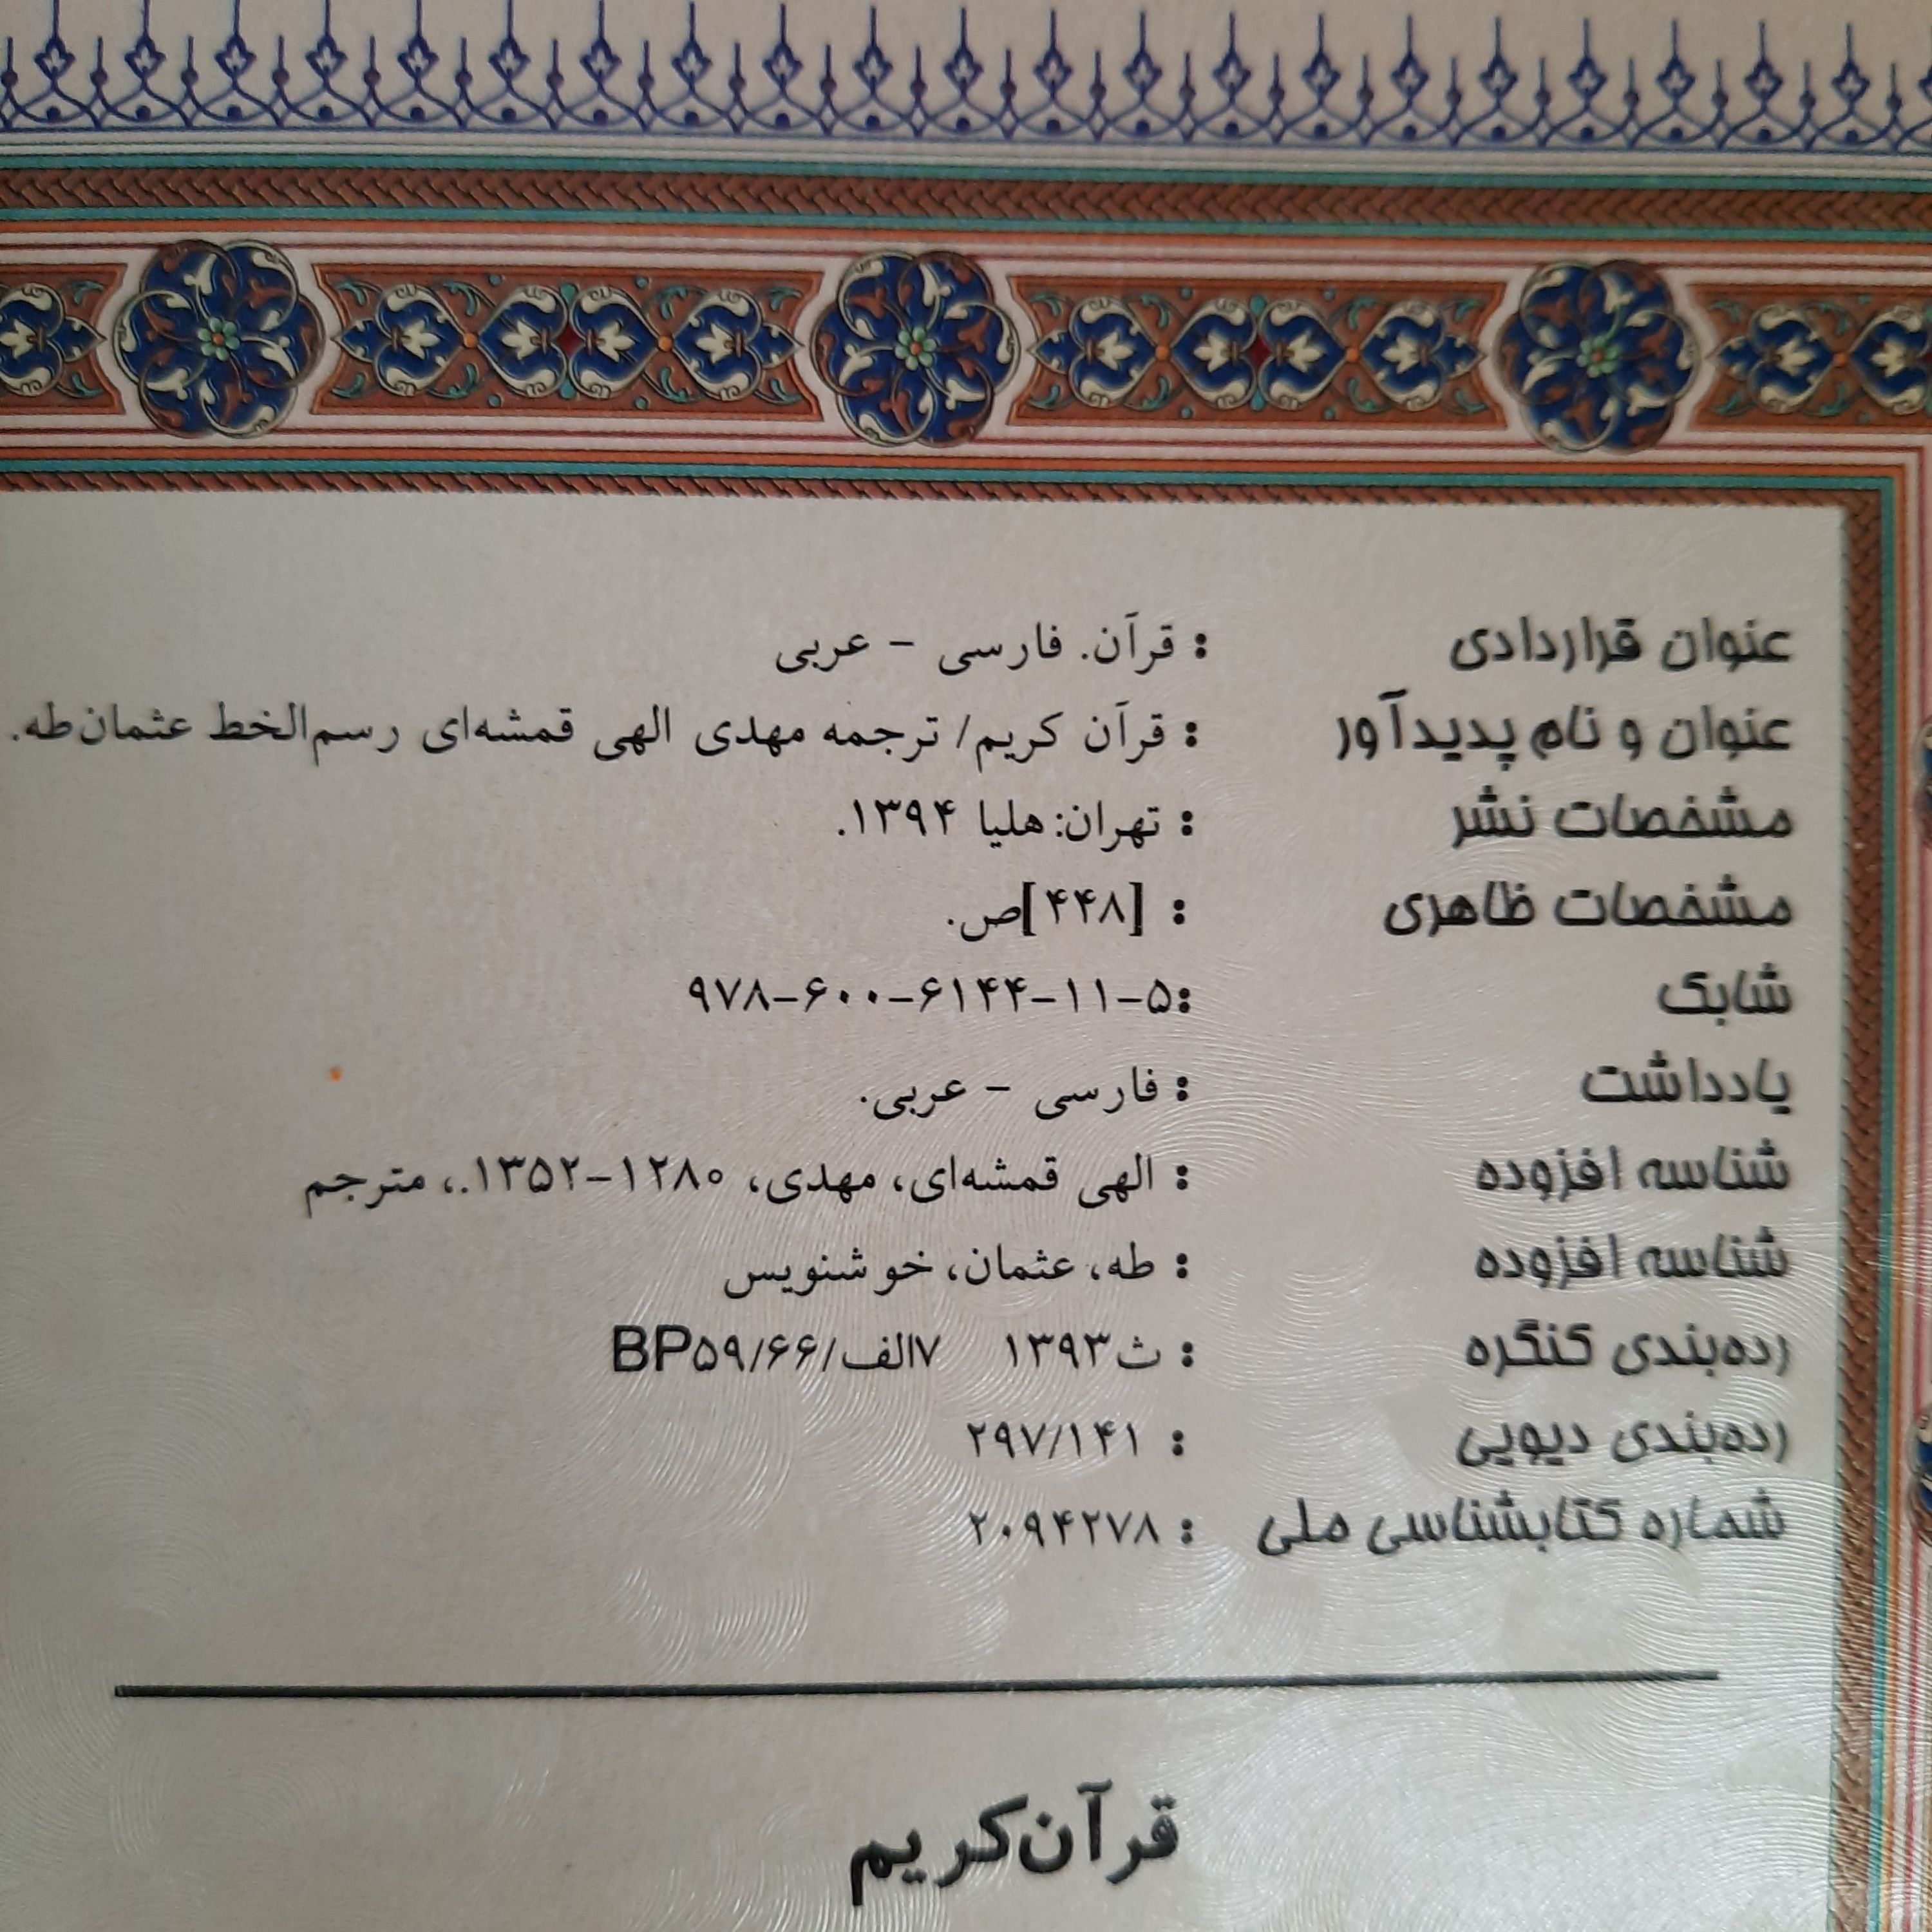 عنوان قراردادی : قرآن. فارسی - عربی
عنوان و نام پدیدآور : قرآن کریم/ ترجمه مهدی الهی قمشه‌ای رسم‌الخط عثمان‌طه.
مشخصات نشر : تهران: هلیا ۱۳۹۴.
مشخصات ظاهری : [۴۴۸]ص.
شابک :۹۷۸-۶۰۰-۶۱۴۴-۱۱-۵
یادداشت : فارسی - عربی.
شناسه افزوده : الهی قمشه‌ای، مهدی، ۱۲۸۰-۱۳۵۲.، مترجم
شناسه افزوده : طه، عثمان، خوشنویس
رده‌بندی کنگره : ث۱۳۹۳ ۷الف/BP۵۹/۶۶
رده‌بندی دیویی : ۲۹۷/۱۴۱
شماره کتابشناسی ملی : ۲۰۹۴۲۷۸
قرآن‌کریم